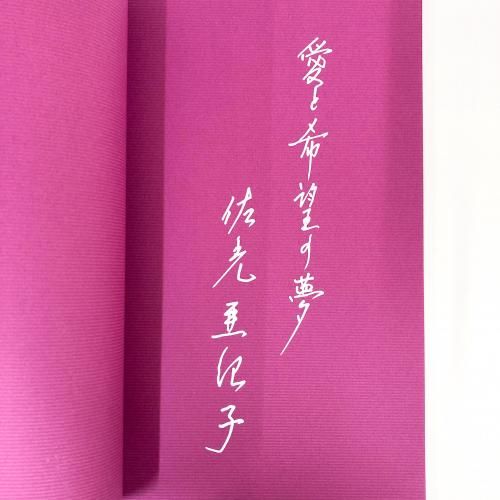 愛と希望の夢
佐光亜紀子